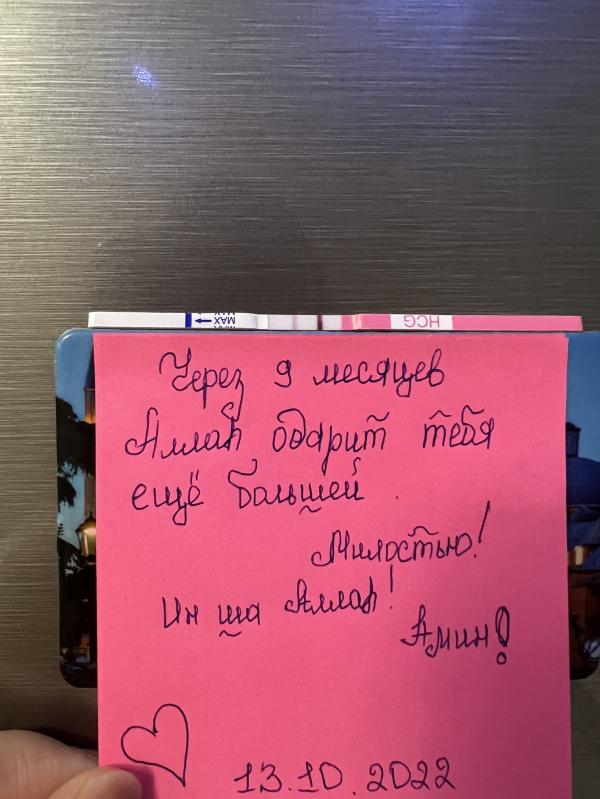 MAX
HCG
Через 9 месяцев
Аллаh одарит тебя
ещё большей.
Милостью!
Ин ша Аллаh!
Амин!
13.10.2022